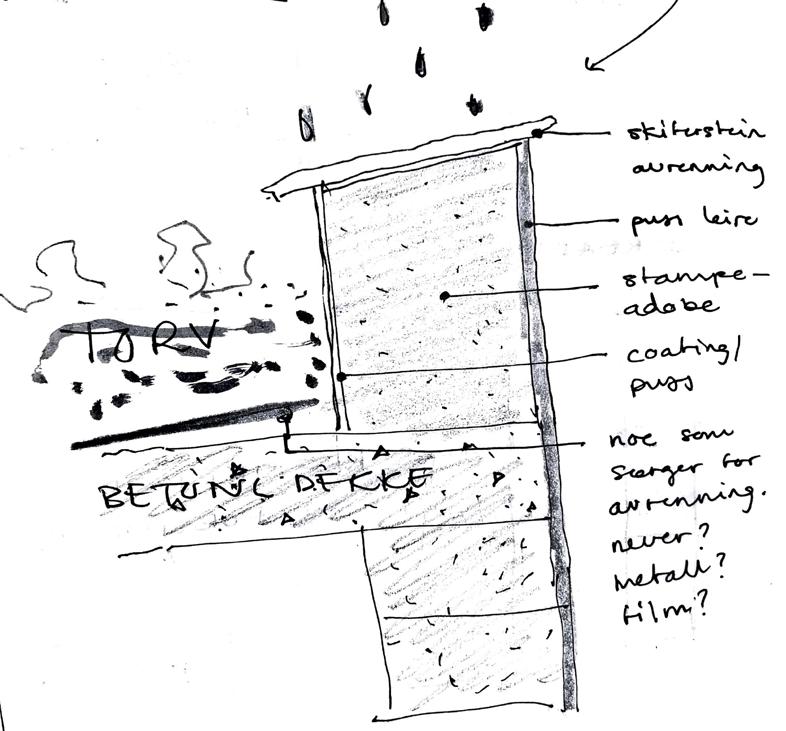 skiferstein
avrenning
puss leire
stampe-
adobe
coating/
puss
TORV
noe som
sørger for
avrenning.
never?
metall?
film?
BETONG DEKKE